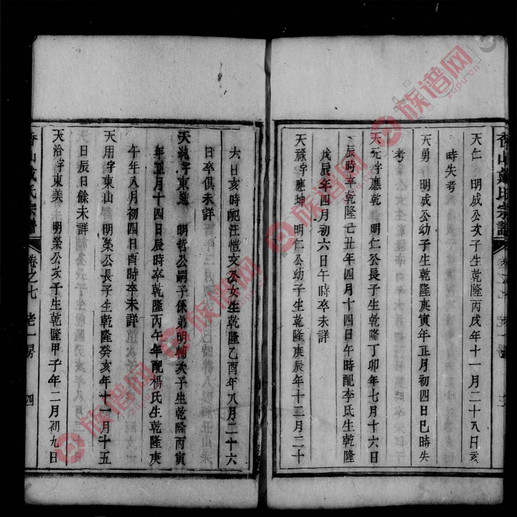 香山戴氏宗譜
天仁 明成公次子生乾隆丙戌年十一月二十八日亥
時失考
天勇 明成公幼子生乾隆庚寅年正月初四日巳時失
考
天元字應乾 明仁公長子生乾隆丁卯年七月十六日
辰時卒乾隆己丑年四月十四日午時配李氏生乾隆
戊辰年四月初六日午時卒未詳
天祿字應坤 明仁公幼子生乾隆庚辰年十二月二十
六日亥時配汪愷友公女生乾隆乙酉年八月二十六
日卒俱未詳
天 字東 明哲公嗣子係 明輔次子生乾隆丙寅
年正月十四日辰時卒乾隆丙午年配楊氏生乾隆庚
午年八月初四日酉時卒未詳
天用字東山 明榮公長子生乾隆癸亥年十一月十五
日辰時餘未詳
天 字東美 明榮公次子生乾隆甲子年二月初九日
香山戴氏宗譜 卷之七 老一房 四
族谱网
族谱网
族谱网
族谱网